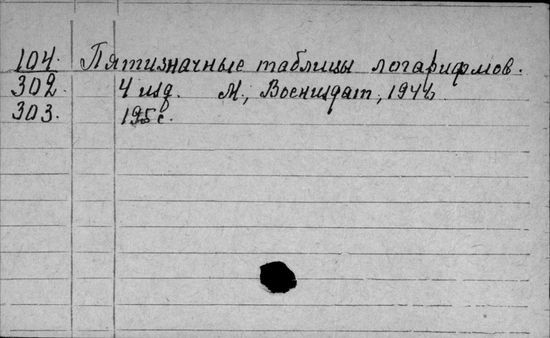 104. Пятизначные таблицы логарифмов.
302. 4 изд. М., Воениздат, 1944.
303. 195 с.